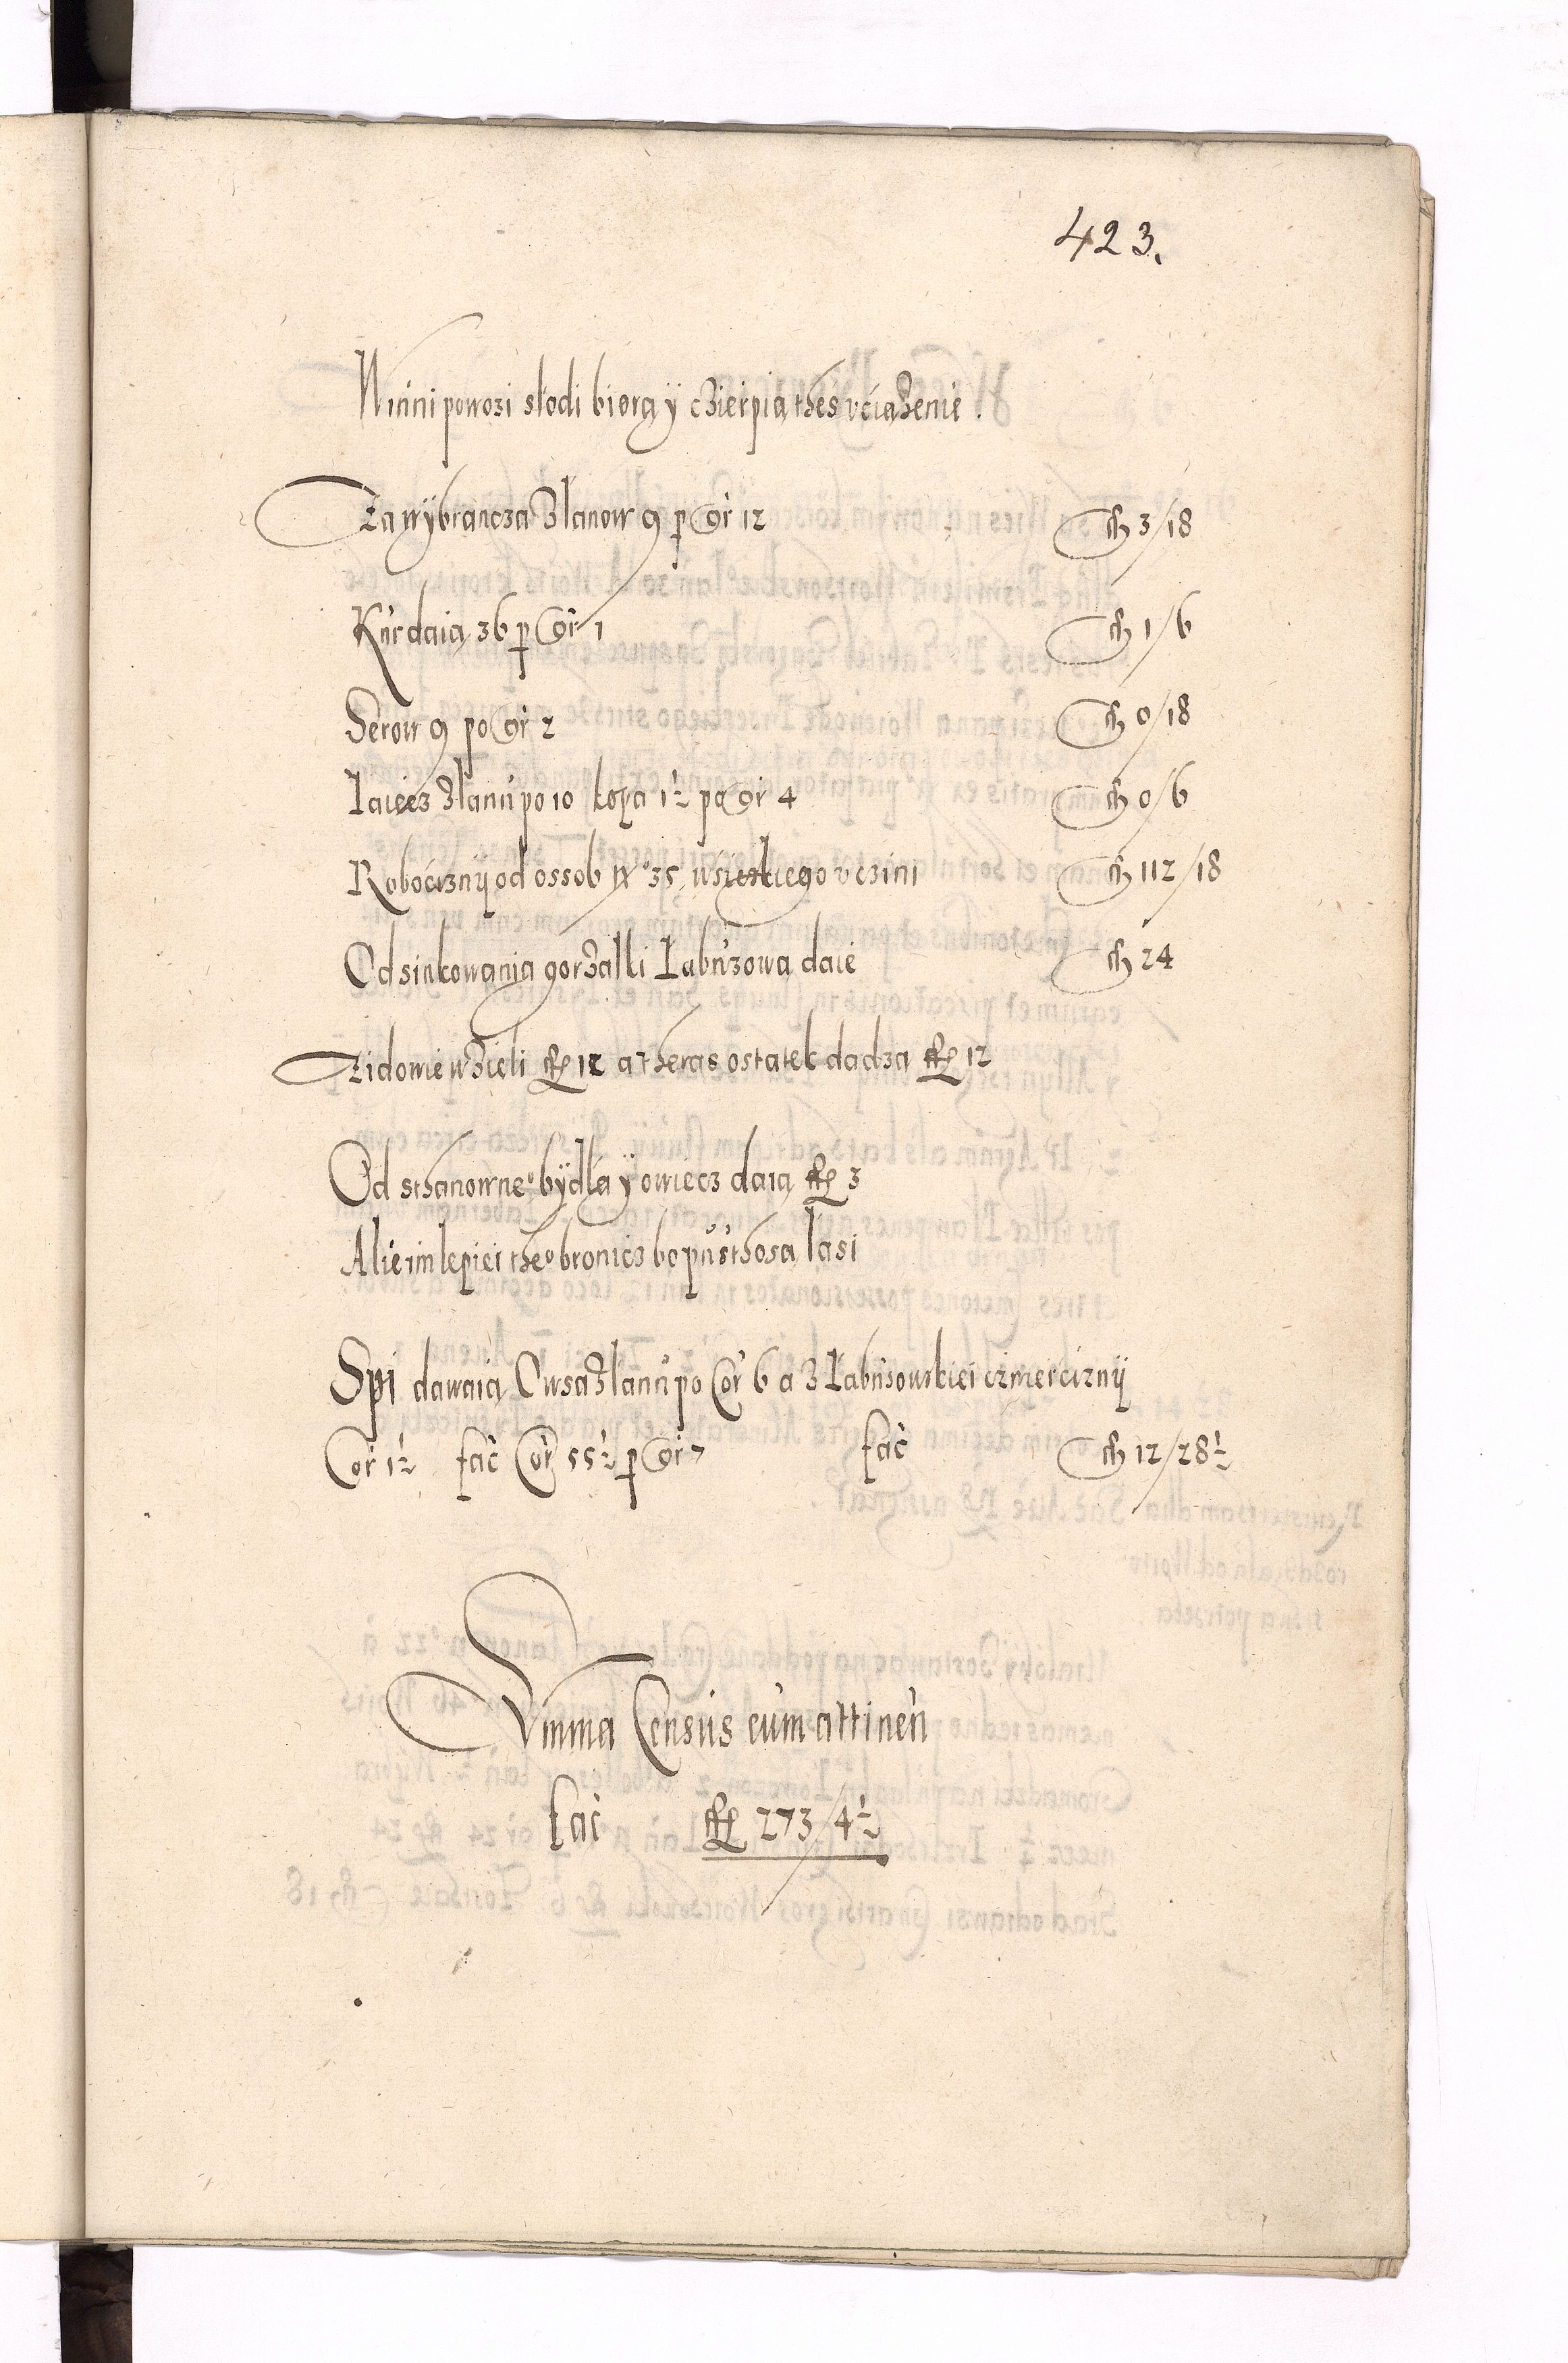 423.
Winni powozi słodi biorą ÿ cżierpią thes vciążenie.
Za wÿbrancza z łanow 9 p gr 12 fl 3/18
Kur daią 36 p gr 1 fl 1/6
Serow 9 po gr 2 fl 0/18
Iaiecz z łanu po 10 kopa 1½ po gr 4 fl 0/6
Robociznÿ od ossob 35 wsistkiego vczini fl 112/18
Od sinkowania gorzałki Łabuzowa daie fl 24
Zidowie wzieli fl 12 a theras ostatek dadza fl 12
Od sthanowne° bÿdła ÿ owiecz daią fl 3
Alie im lepiei the° bronicz bo pusthosa lasi
Spi dawaią Owsa z łanu po Cor 6 a z Łabuzowskiei czwerciznÿ
Cor 1½ fac Cor 55½ p gr 7 fac fl 12/28½
Summa Census cum attinen
fac fl 273/4½